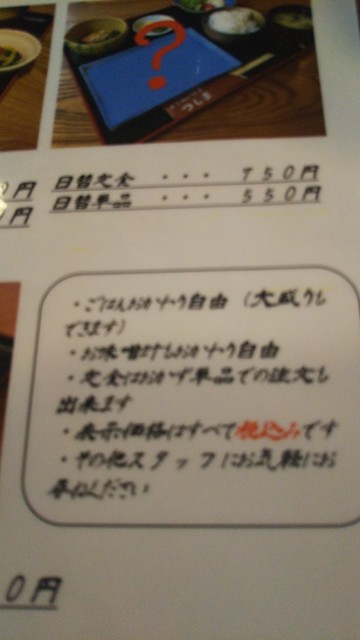 ?
つしま
日替定食 ・・・ 750円
日替単品 ・・・ 550円
円
円
・ごはんおかわり自由（大盛りも
できます）
・お味噌汁もおかわり自由
・定食はおかず単品での注文も
出来ます
・表示価格はすべて税込みです
・その他スタッフにお気軽にお
尋ねください
0円